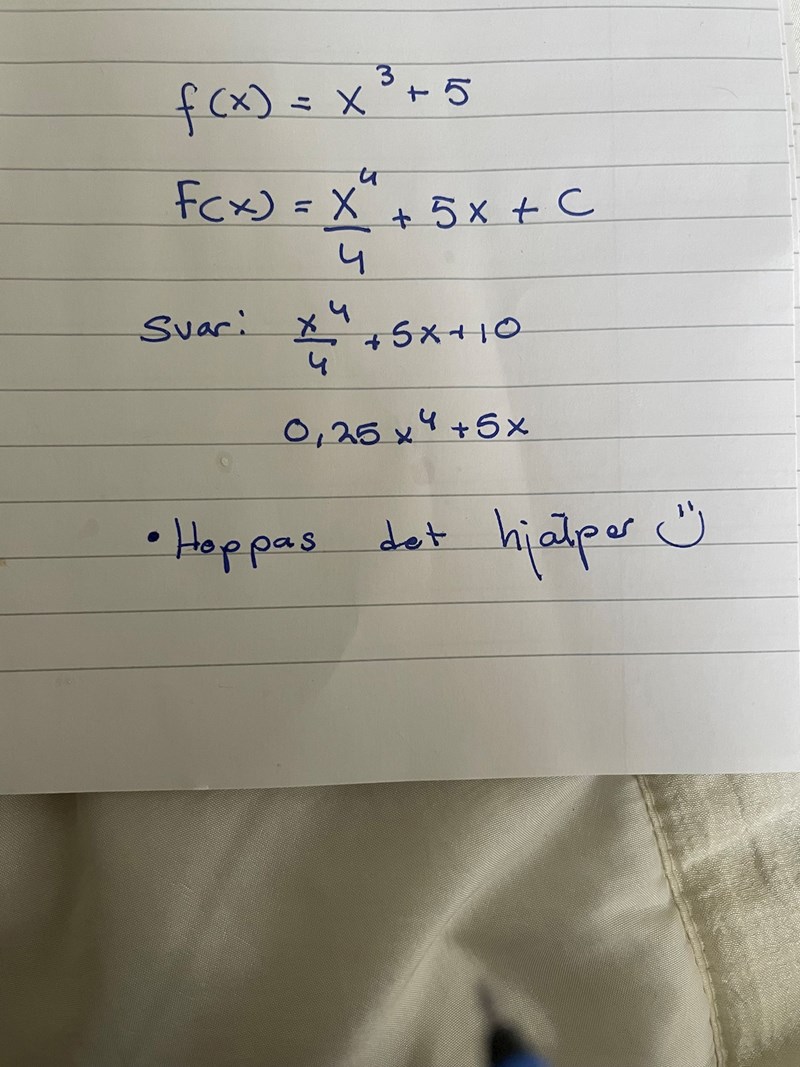 f(x) = x³ + 5
F(x) = x⁴/4 + 5x + C
Svar: x⁴/4 + 5x + 10
0,25x⁴ + 5x
• Hoppas det hjälper :)